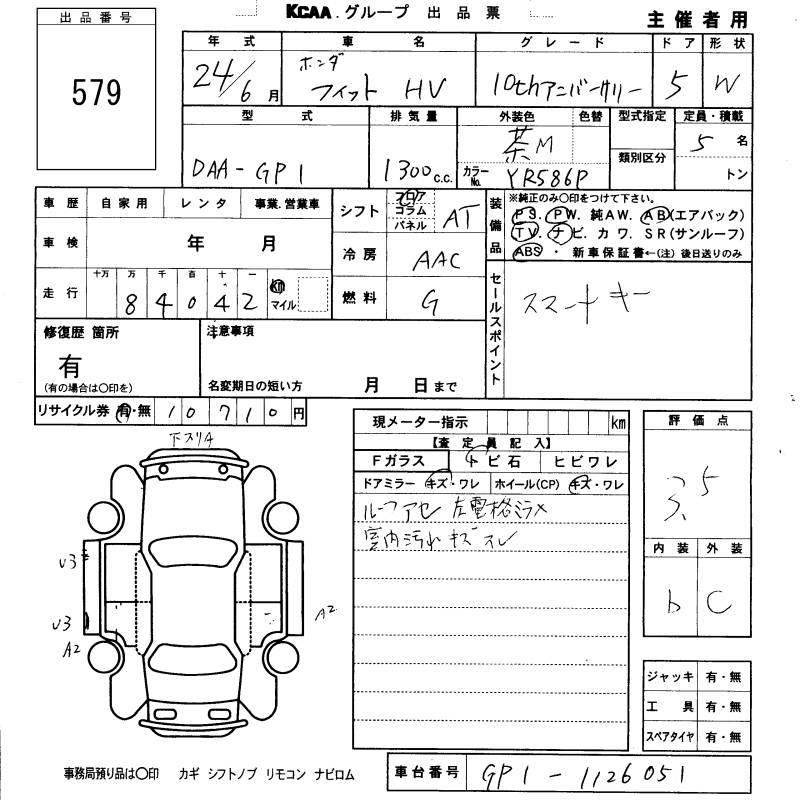 KCAA グループ 出品票
主催者用
出品番号
579
年式 車名 グレード ドア 形状
24/6月 ホンダ フィット HV 10thアニバーサリー 5 W
型式 排気量 外装色 色替 型式指定 定員・積載
DAA-GP1 1300c.c. 茶M 類別区分 5名
カラーNo. YR586P トン
車歴 自家用 レンタ 事業.営業車
車検 年 月
走行 十万 万 千 百 十 一
84042 km マイル
シフト フロア コラム パネル AT
冷房 AAC
燃料 G
装備品
※純正のみ〇印をつけて下さい。
PS. PW. 純AW. AB(エアバック)
TV. ナビ. カワ. SR(サンルーフ)
ABS・新車保証書←(注)後日送りのみ
セールスポイント
スマートキー
修復歴 箇所
有
(有の場合は〇印を)
注意事項
名変期日の短い方 月 日まで
リサイクル券 有・無 10710円
下スリキ
U3
U3
A2
A2
現メーター指示 km
【査定員記入】
Fガラス トビ石 ヒビワレ
ドアミラー キズ・ワレ ホイール(CP) キズ・ワレ
ルーフアセ 左電格ミラ×
室内汚れ キズ スレ
評価点
5
内装 外装
b C
ジャッキ 有・無
工具 有・無
スペアタイヤ 有・無
事務局預り品は〇印 カギ シフトノブ リモコン ナビロム
車台番号 GP1-1126051